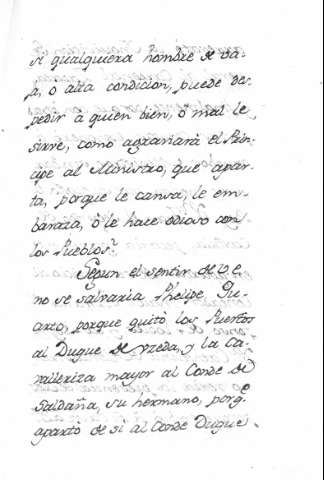 Si qualquiera hombre de ba-
ja, o alta condicion, puede des-
pedir à quien bien, ò mal le
sirve, como agraviarà el Prin-
cipe al Ministro, que apar-
ta, porque le cansa, le em-
baraza, ò le hace odioso con
los Pueblos?
Segun el sentir de V.E.
no se salvaria Phelipe Qu-
arto, porque quitò los Puertos
al Duque de Vzeda, y la Ca-
valleriza mayor al Conde de
Saldaña, su hermano, porq.e
apartò de si al Conde Duque